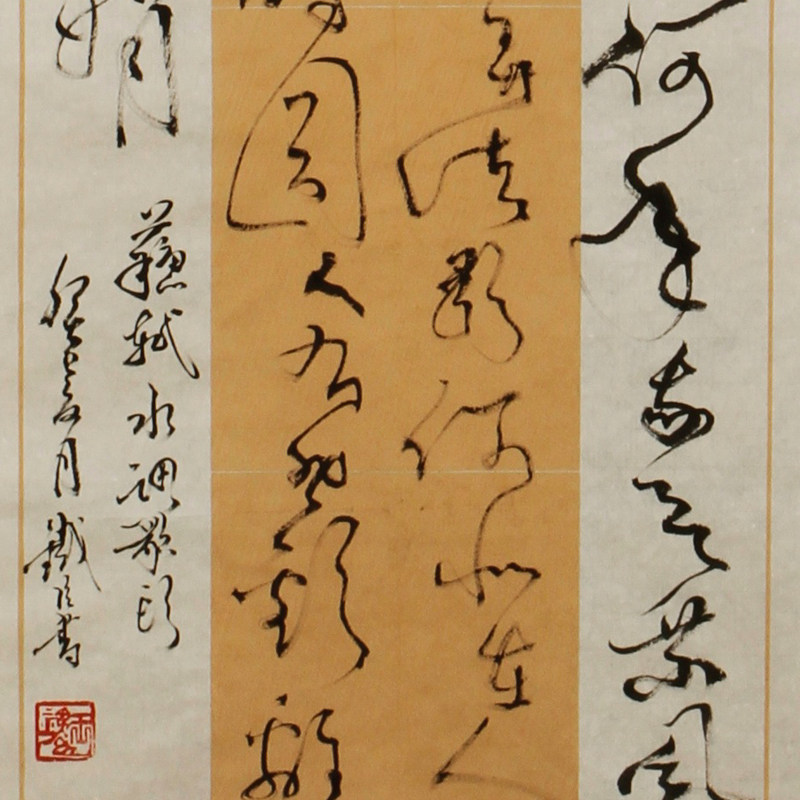 何年我欲乘風
弄清影何似在人
圓人有悲歡離
娟
蘇軾水調歌頭
月鐵書